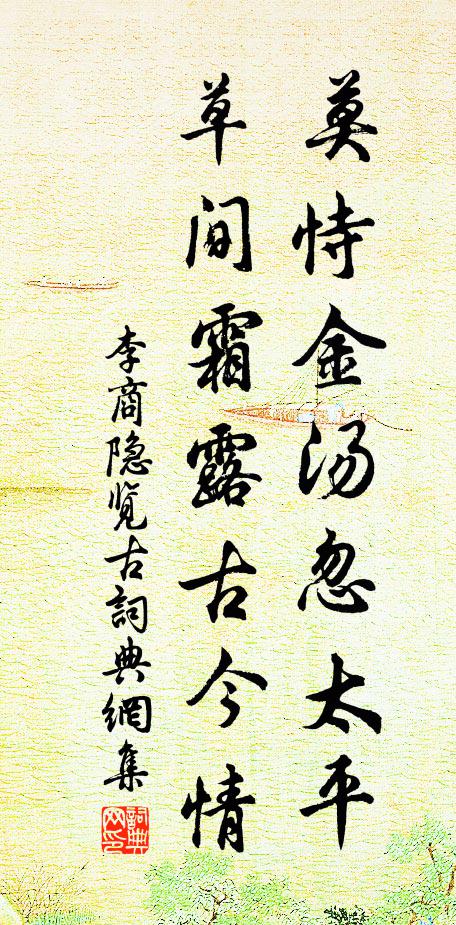 莫恃金汤忽太平
草间霜露古今情
李商隐览古詞典網集
詞典
网印